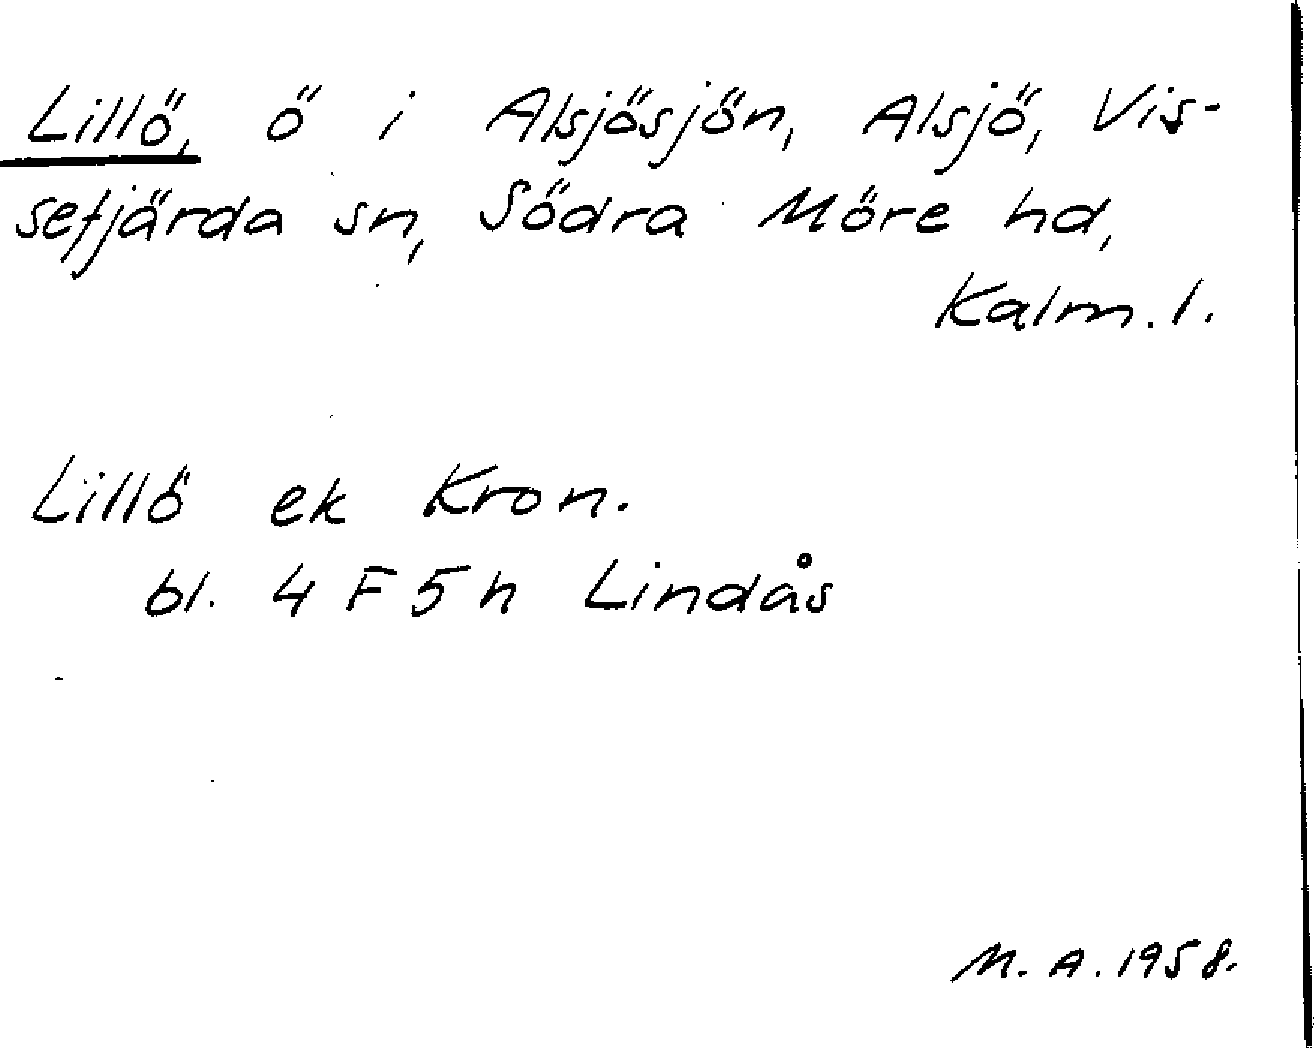 Lillö, ö i Alsjösjön, Alsjö, Vis-
sefjärda sn, Södra Möre hd,
Kalm. l.
Lillö ek Kron.
bl. 4 F 5 h Lindås
M. A. 1958.